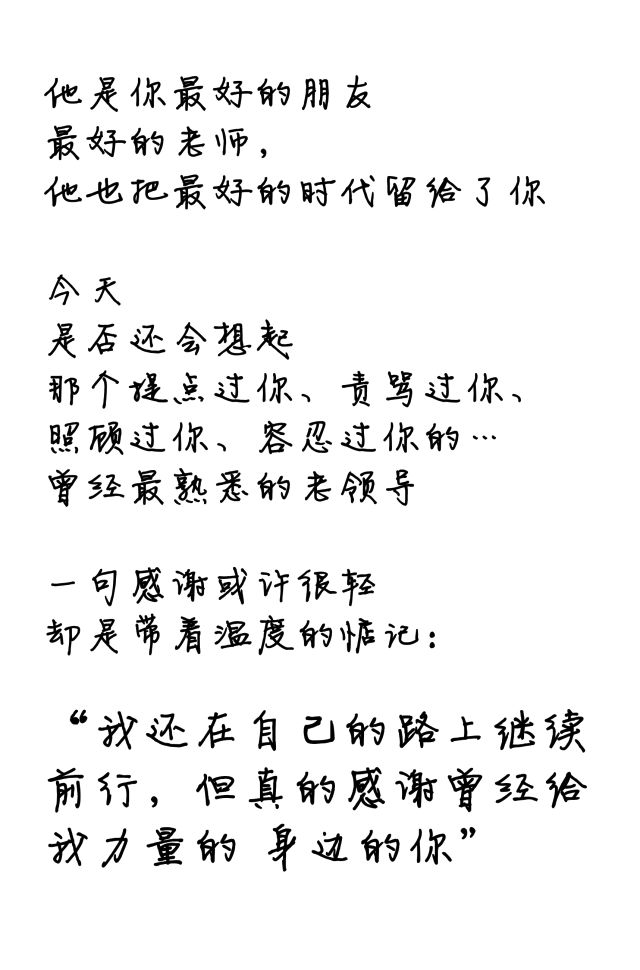 他是你最好的朋友
最好的老师，
他也把最好的时代留给了你
今天
是否还会想起
那个提点过你、责骂过你、
照顾过你、容忍过你的…
曾经最熟悉的老领导
一句感谢或许很轻
却是带着温度的惦记：
“我还在自己的路上继续
前行，但真的感谢曾经给
我力量的 身边的你”